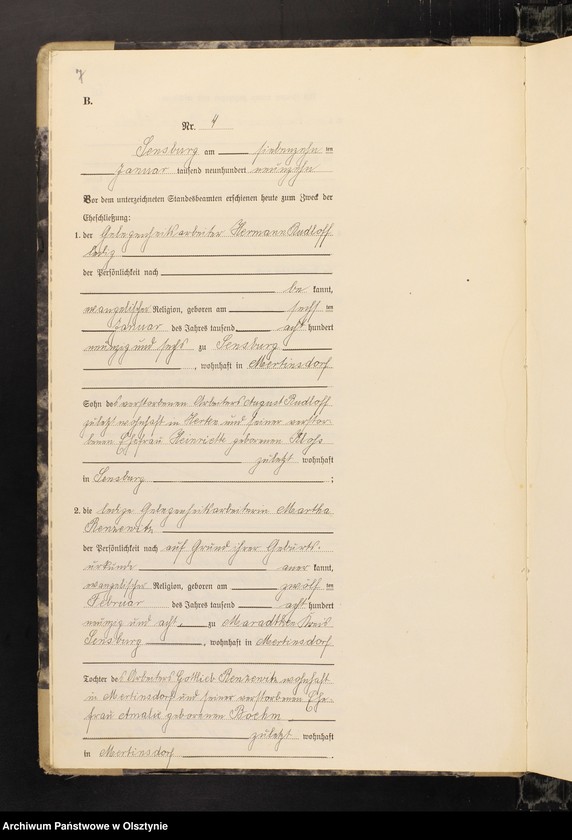 7
B.
Nr. 4
Sensburg am siebenzehn ten
Januar tausend neunhundert neunzehn
Vor dem unterzeichneten Standesbeamten erschienen heute zum Zweck der
Eheschließung:
1. der Gelegenheitsarbeiter Hermann Budloff
ledig
der Persönlichkeit nach
be kannt,
evangelischer Religion, geboren am sechs ten
Januar des Jahres tausend acht hundert
neunzig und sechs zu Sensburg
, wohnhaft in Mertinsdorf
Sohn des verstorbenen Arbeiters August Budloff
zuletzt wohnhaft in und seiner verstor-
benen Ehefrau Heinriette geborenen
zuletzt wohnhaft
in Sensburg ;
2. die ledige Gelegenheitsarbeiterin Martha
Renzewitz
der Persönlichkeit nach auf Grund ihrer Geburts-
urkunde aner kannt,
evangelischer Religion, geboren am zwölf ten
Februar des Jahres tausend acht hundert
neunzig und acht zu Maradtken Kreis
Sensburg , wohnhaft in Mertinsdorf
Tochter des Arbeiters Gottlieb Renzewitz wohnhaft
in Mertinsdorf und seiner verstorbenen Ehe-
frau Amalie geborenen Boehm
zuletzt wohnhaft
in Mertinsdorf .
Archiwum Państwowe w Olsztynie